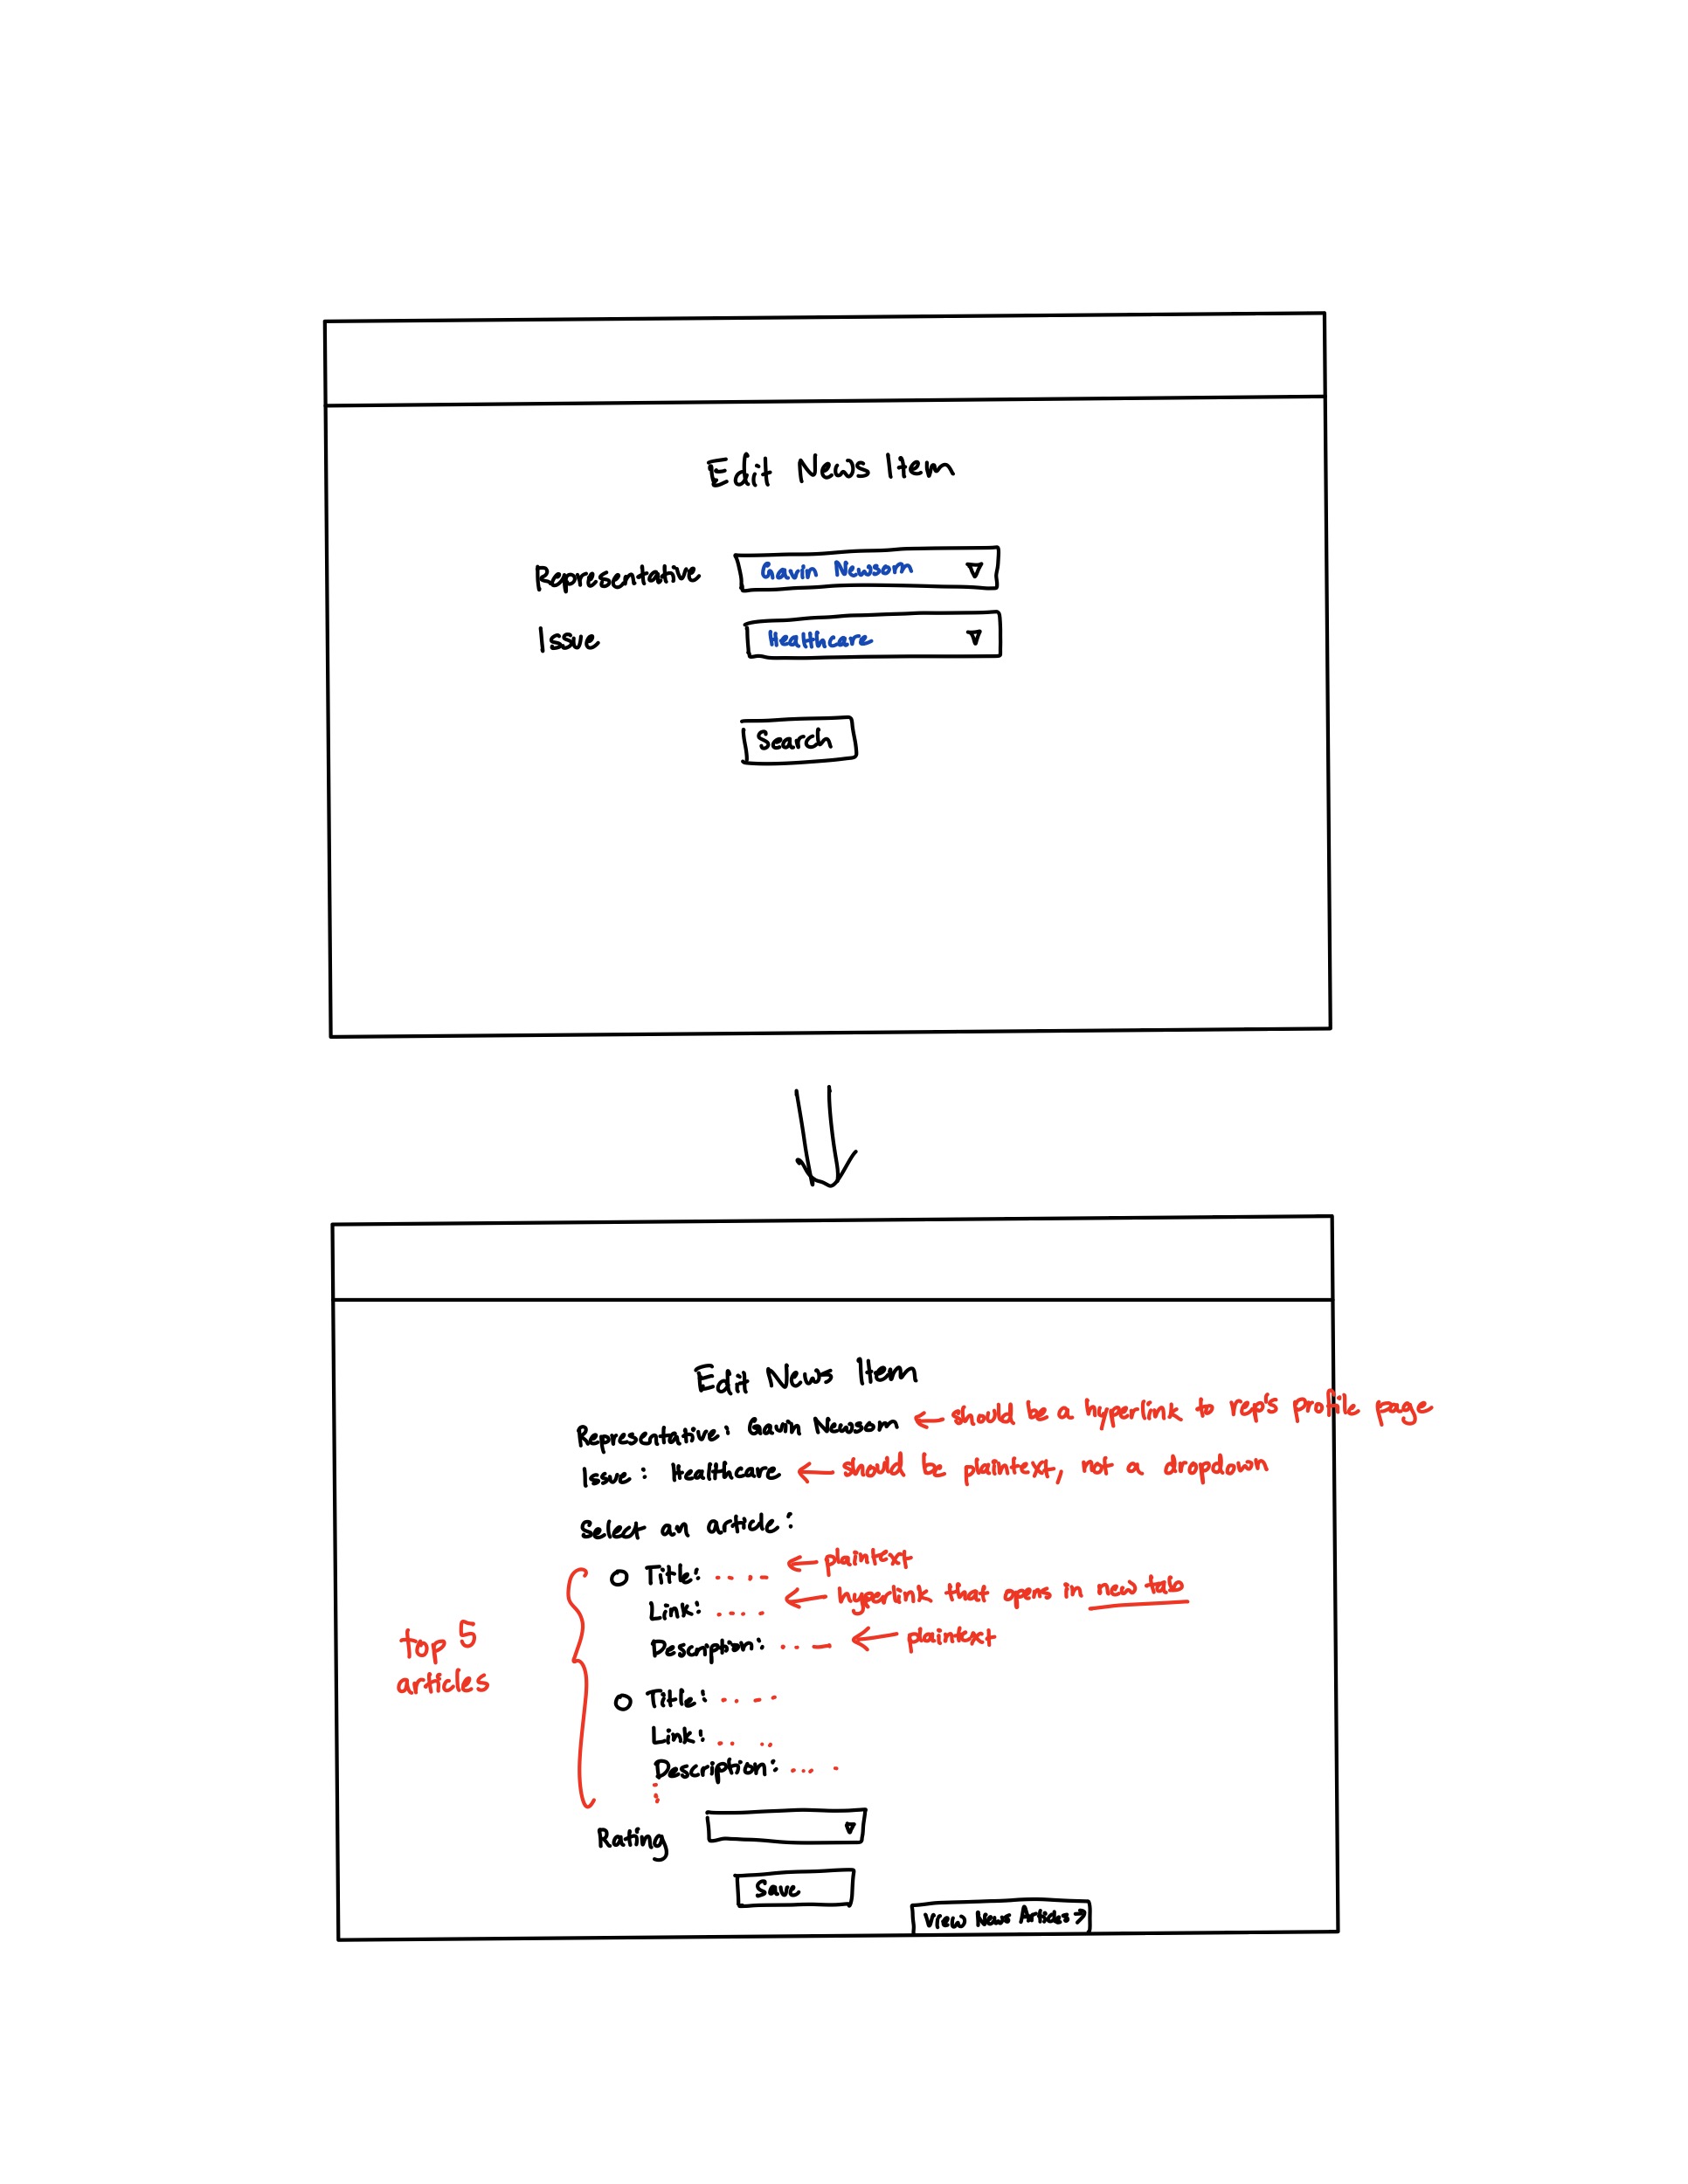 Edit News Item
Representative Gavin Newsom
Issue Healthcare
Search
Edit News Item
Representative: Gavin Newsom ← should be a hyperlink to rep's profile page
Issue: Healthcare ← should be plaintext, not a dropdown
Select an article:
Title: .... ← plaintext
Link: .... ← hyperlink that opens in new tab
Description: ... ← plaintext
top 5
articles
Title: ....
Link: ....
Description: ....
Rating
Save
View News Articles →